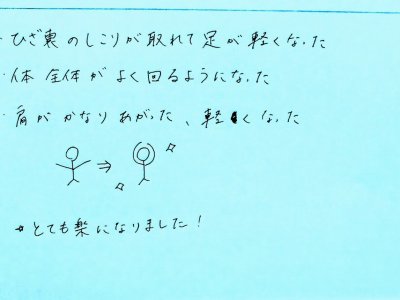 ・ひざ裏のしこりが取れて足が軽くなった
・体全体がよく回るようになった
・肩がかなりあがった、軽くなった
⇒
☆とても楽になりました！